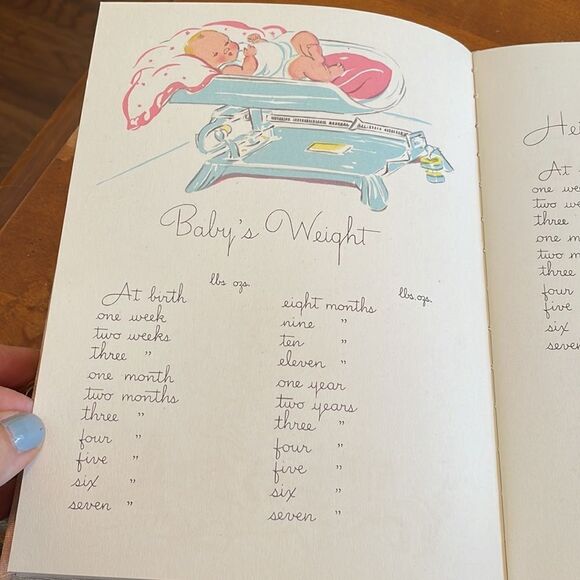 Baby's Weight
lbs. ozs.
At birth
one week
two weeks
three "
one month
two months
three "
four "
five "
six "
seven "
lbs. ozs.
eight months
nine "
ten "
eleven "
one year
two years
three "
four "
five "
six "
seven "
At
one
two
three
one m
two m
three
four
five
six
seven